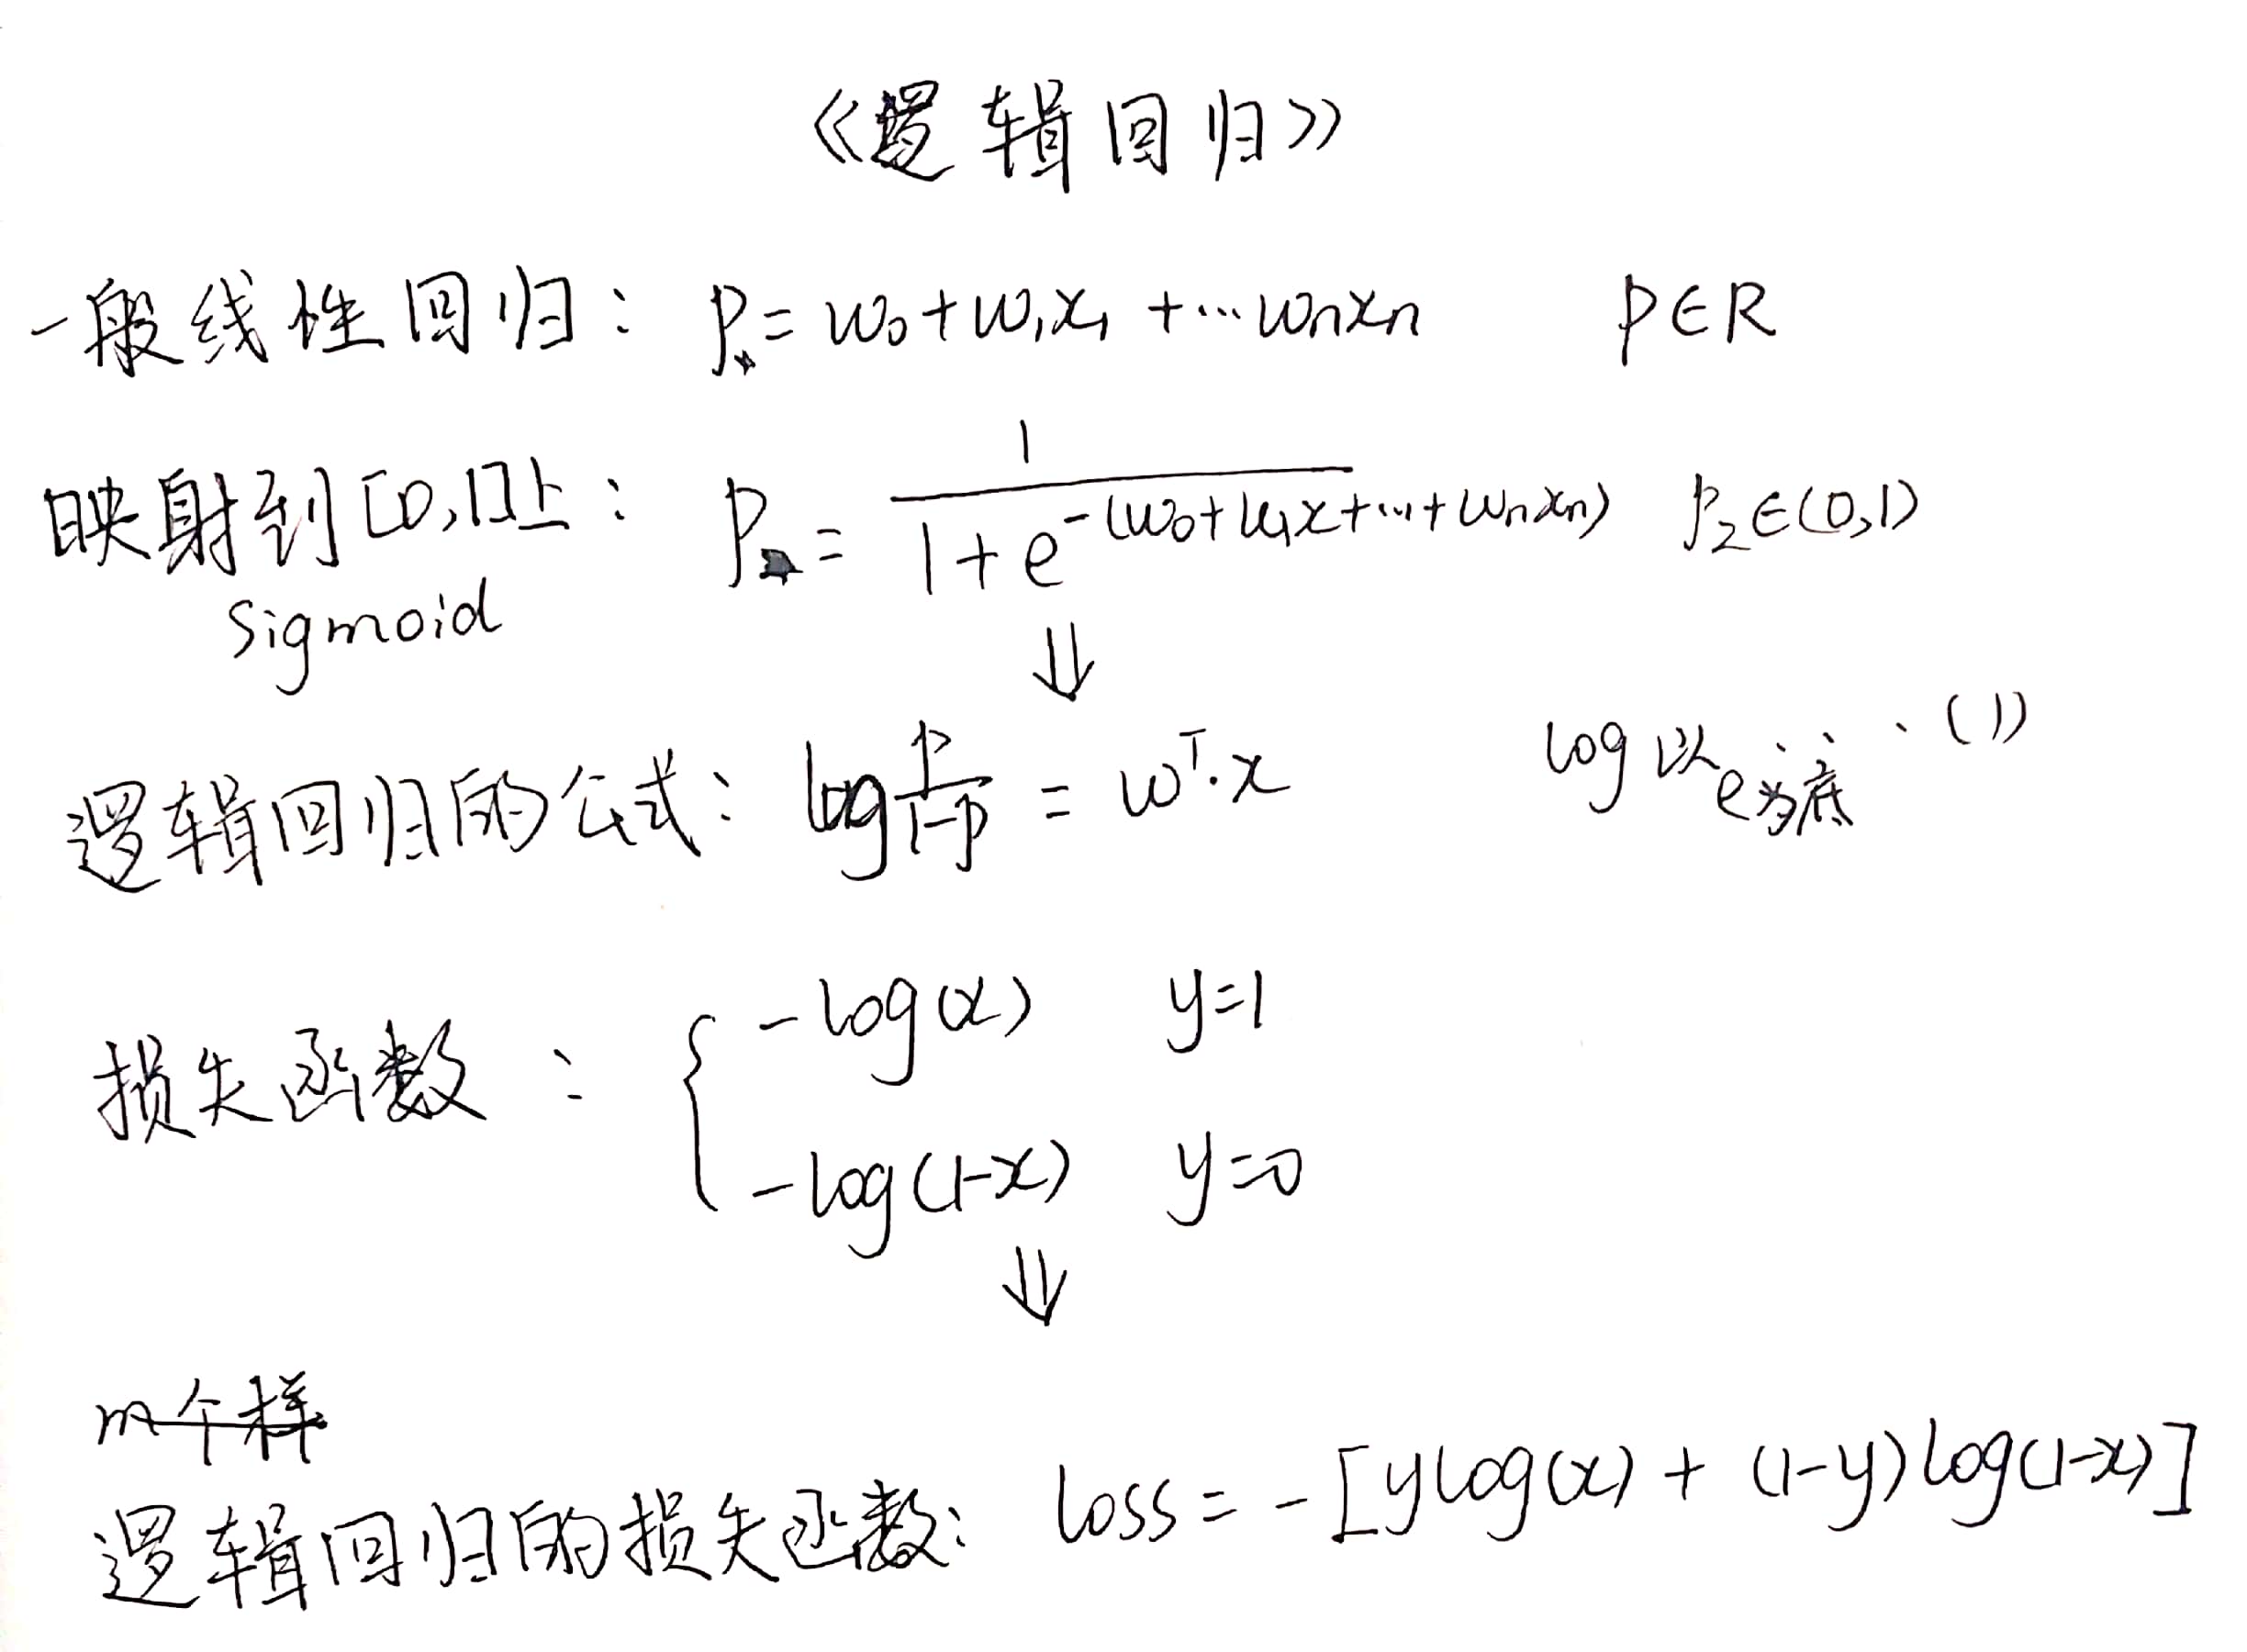 《逻辑回归》
一般线性回归： P = w₀ + w₁x₁ + … wₙxₙ P∈R
映射到[0,1]上： P = 1 / (1 + e^-(w₀+w₁x+…+wₙxₙ)) P₂∈(0,1)
Sigmoid
⇓
逻辑回归的公式： log p/(1-p) = wᵀ·x log以e为底 · (1)
损失函数： { -log(x) y=1
-log(1-x) y=0
⇓
m个样
逻辑回归的损失函数： loss = -[ylog(x) + (1-y)log(1-x)]